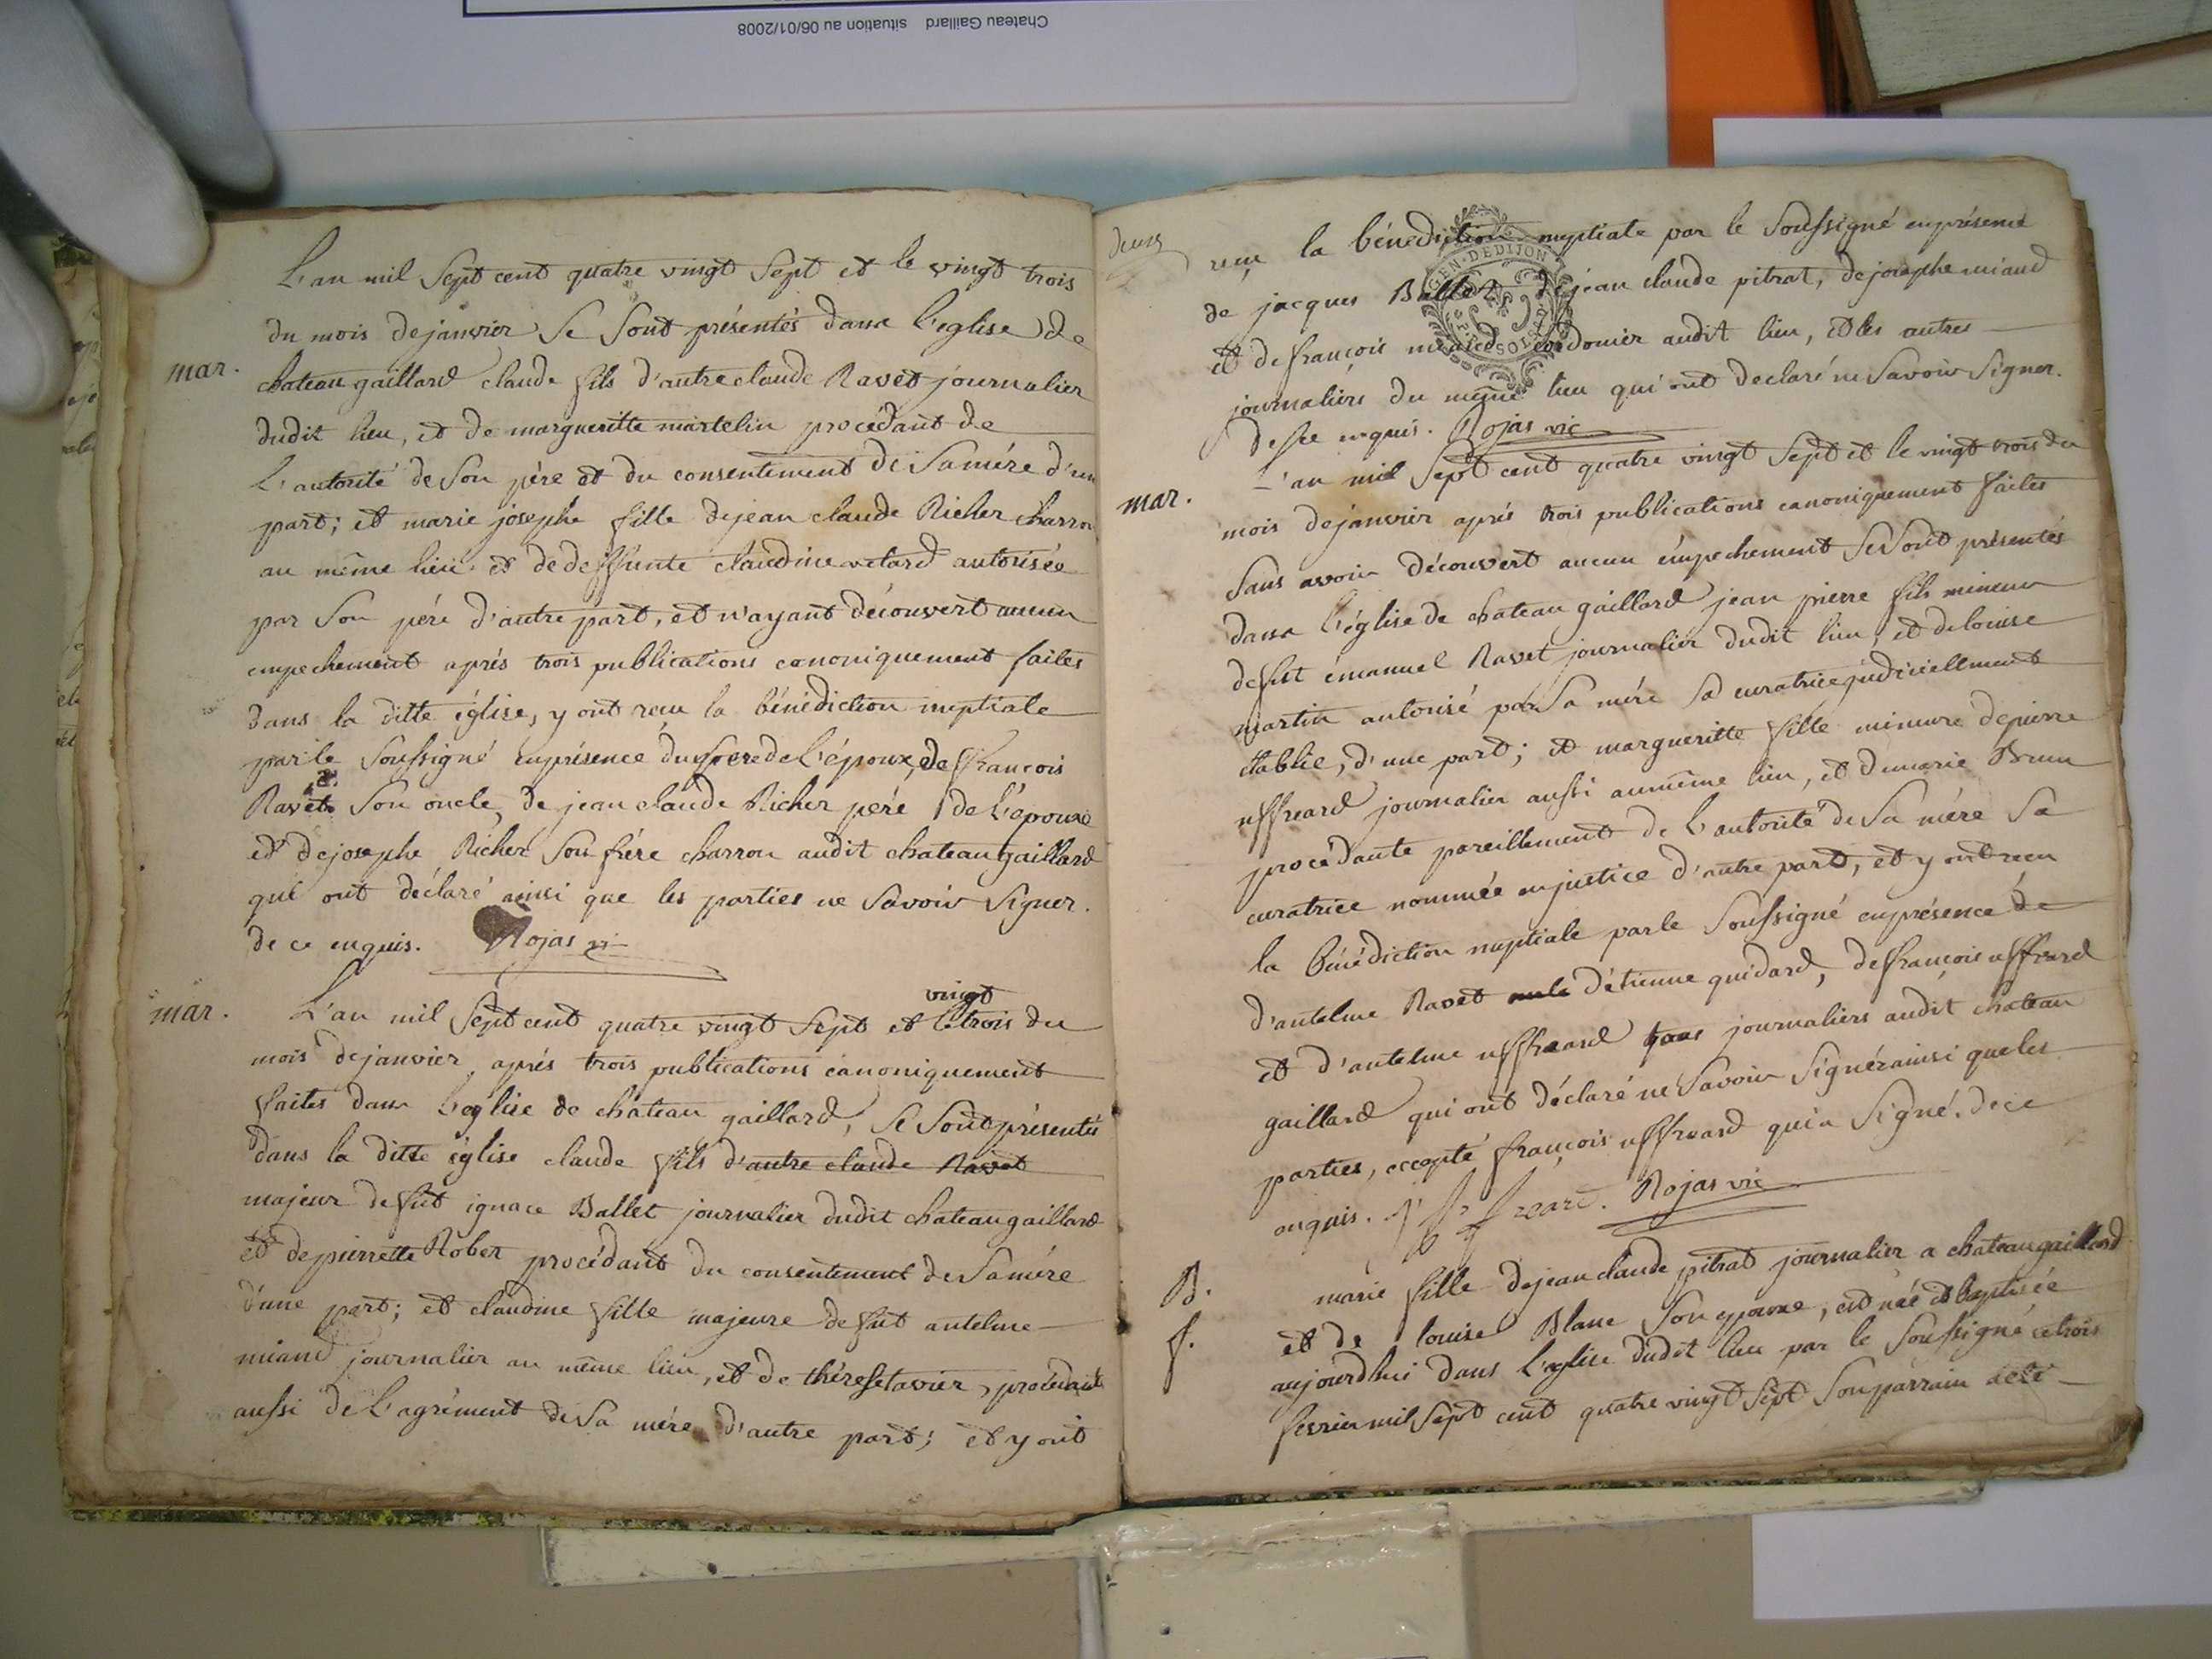 Chateau Gaillard situation au 06/01/2008
L'an mil Sept cent quatre vingt Sept et le vingt trois
du mois de janvier Se Sont présentés dans L'eglise de
mar.
chateau gaillard claude fils d'autre claude Ravet journalier
dudit lieu, et de margueritte martelin procédant de
L'autorité de Son père et du consentement de Samére d'un
part; et marie josephe fille de jean claude Richer charron
au même lieu et de deffunte claudine autorisée
par Son pére d'autre part, et n'ayant découvert aucun
empechement aprés trois publications canoniquement faites
dans la ditte église, y ont reçu la bénédiction nuptiale
par le Soussigné en présence du pere de L'époux, de françois
Ravet Son oncle, de jean claude Richer pére de L'epouse
et de josephe Richer Son frére charron audit chateau gaillard
qui ont déclaré ainsi que les parties ne Savoir Signer.
de ce enquis. Rojas vi
mar.
L'an mil Sept cent quatre vingt Sept et le vingt trois du
mois de janvier, aprés trois publications canoniquement
faites dans L'eglise de château gaillard, Se Sont présentés
dans la ditte église claude fils d'autre claude Ravet
majeur de fût ignace Ballet journalier dudit chateau gaillard
et de pierrette Rober procédant du consentement de Samére
d'une part; et claudine fille majeure de fût antelme
miand journalier au même lieu, et de thérese tavier, procedante
aussi de L'agrément de Sa mére d'autre part; et y ont
deux
reçu la bénédiction nuptiale par le Soussigné en présence
de jacques Ballet de jean claude pitrat, de josephe miand
et de françois miand cordonier audit lieu, et les autres
journaliers du même lieu qui ont declaré ne Savoir Signer.
de ce enquis. Rojas vic
GEN. DE DIJON
mar.
L'an mil Sept cent quatre vingt Sept et le vingt trois du
mois de janvier aprés trois publications canoniquement faites
Sans avoir découvert aucun émpechement Se Sont présentés
dans L'église de chateau gaillard jean pierre fils mineur
de fût émanuel Ravet journalier dudit lieu, et de louise
martin autorisé par Sa mére Sa curatrice judiciellement
établie, d'une part; et margueritte fille mineure de pierre
uffreard journalier aussi au même lieu, et de marie Brun
procédante pareillement de L'autorité de Sa mére Sa
curatrice nommée en justice d'autre part, et y ont reçu
la bénédiction nuptiale par le Soussigné en présence de
d'antelme Ravet d'étienne guidard, de françois uffreard
et d'antelme uffreard tous journaliers audit chateau
gaillard qui ont déclaré ne Savoir Signér ainsi que les
parties, excepté françois uffreard qui a Signé. de ce
enquis. Rojas vic
B.
f.
marie fille de jean claude pitrat journalier a chateau gaillard
et de louise Blanc Son epouse, est née et baptisée
aujourdhui dans L'eglise dudit lieu par le Soussigné ce trois
fevrier mil Sept cent quatre vingt Sept Son parrain a été